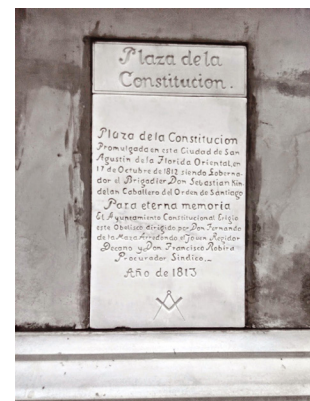 Plaza de la
Constitucion.
Plaza de la Constitucion
Promulgada en esta Ciudad de San
Agustin de la Florida Oriental, en
17 de Octubre de 1812 siendo Goberna-
dor el Brigadier Don Sebastian Kin-
delan Caballero del Orden de Santiago
Para eterna memoria
El Ayuntamiento Constitucional Erigio
este Obelisco dirigido por Don Fernando
de la Maza Arredondo el Joven Regidor
Decano y Don Francisco Robira
Procurador Sindico._
Año de 1813